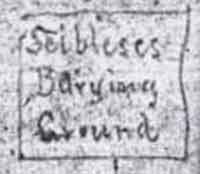 Seibleses
Burying
Ground